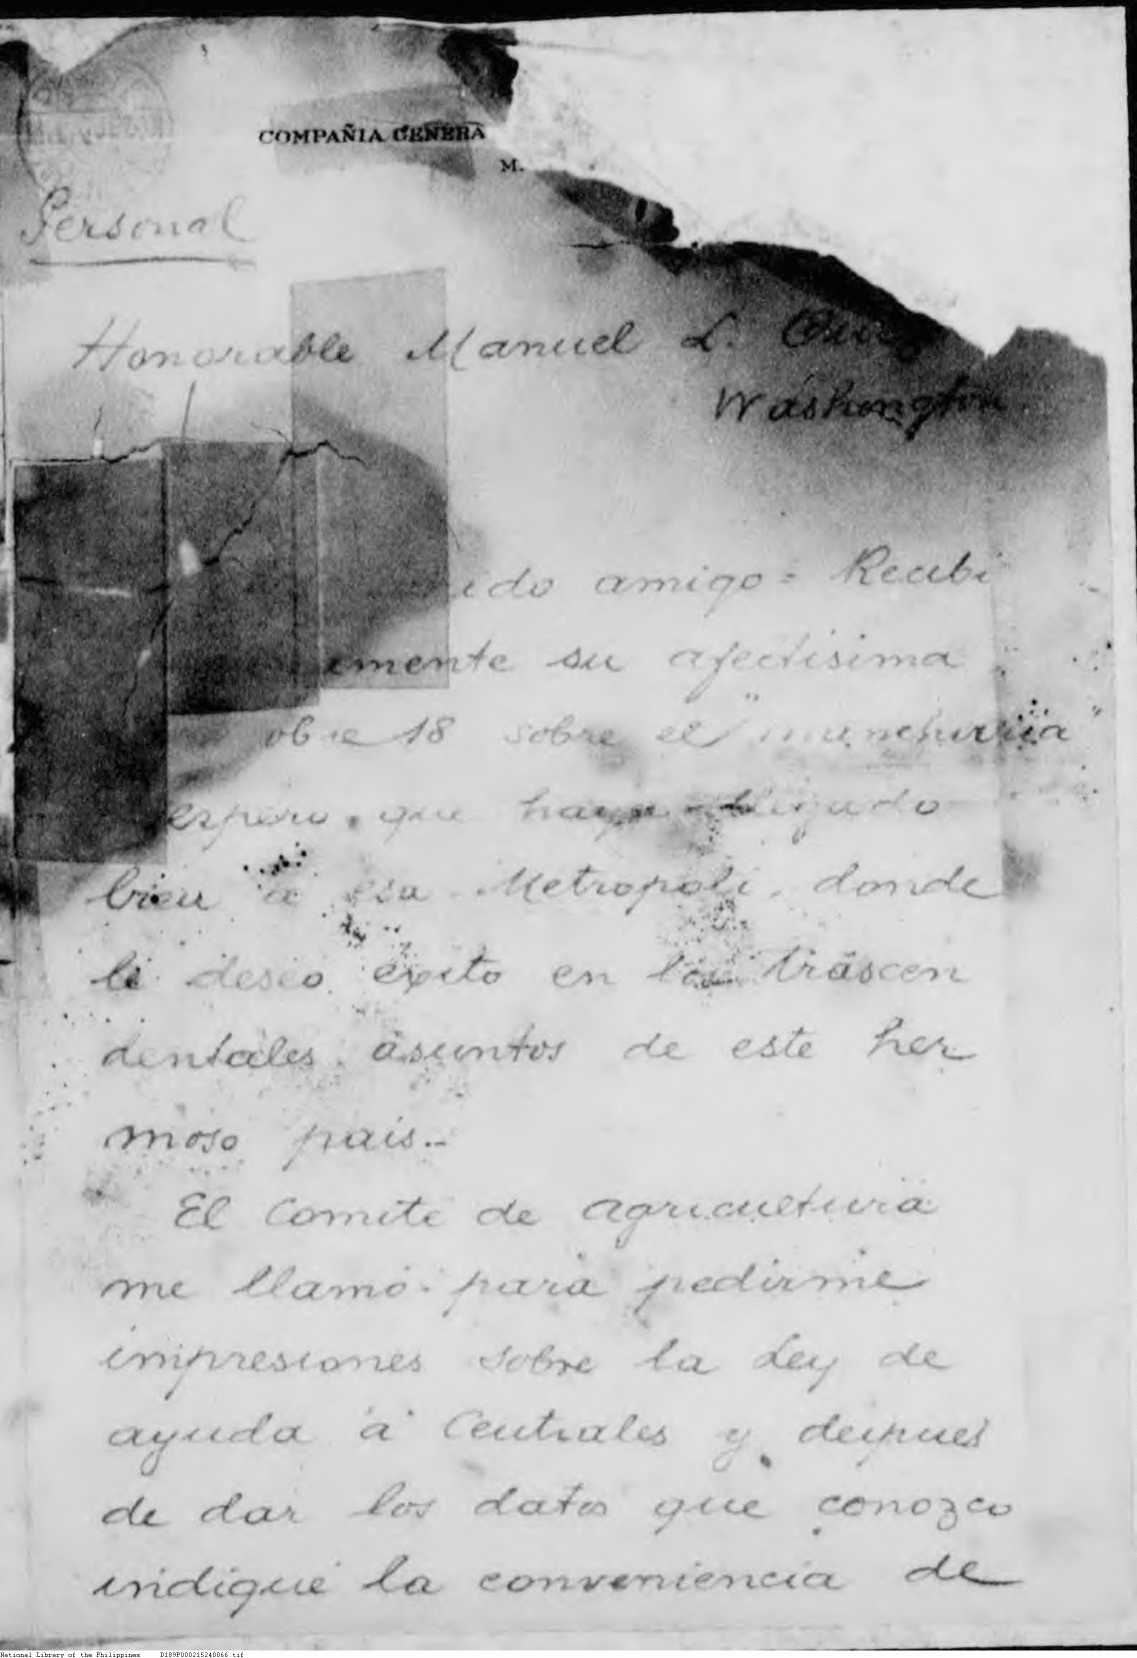 COMPAÑIA GENERA
M.
Personal
Honorable Manuel L.
Washington
amigo = Recibi
su afectisima
18 sobre el "manchuria"
espero que haya llegado
bien a esa Metropoli, donde
le deseo exito en los trascen
dentales asuntos de este her
moso pais.-
El Comite de agricultura
me llamó para pedirme
impresiones sobre la Ley de
ayuda á Centrales y despues
de dar los datos que conozco
indiqué la conveniencia de
National Library of the Philippines D189P000215240066.tif